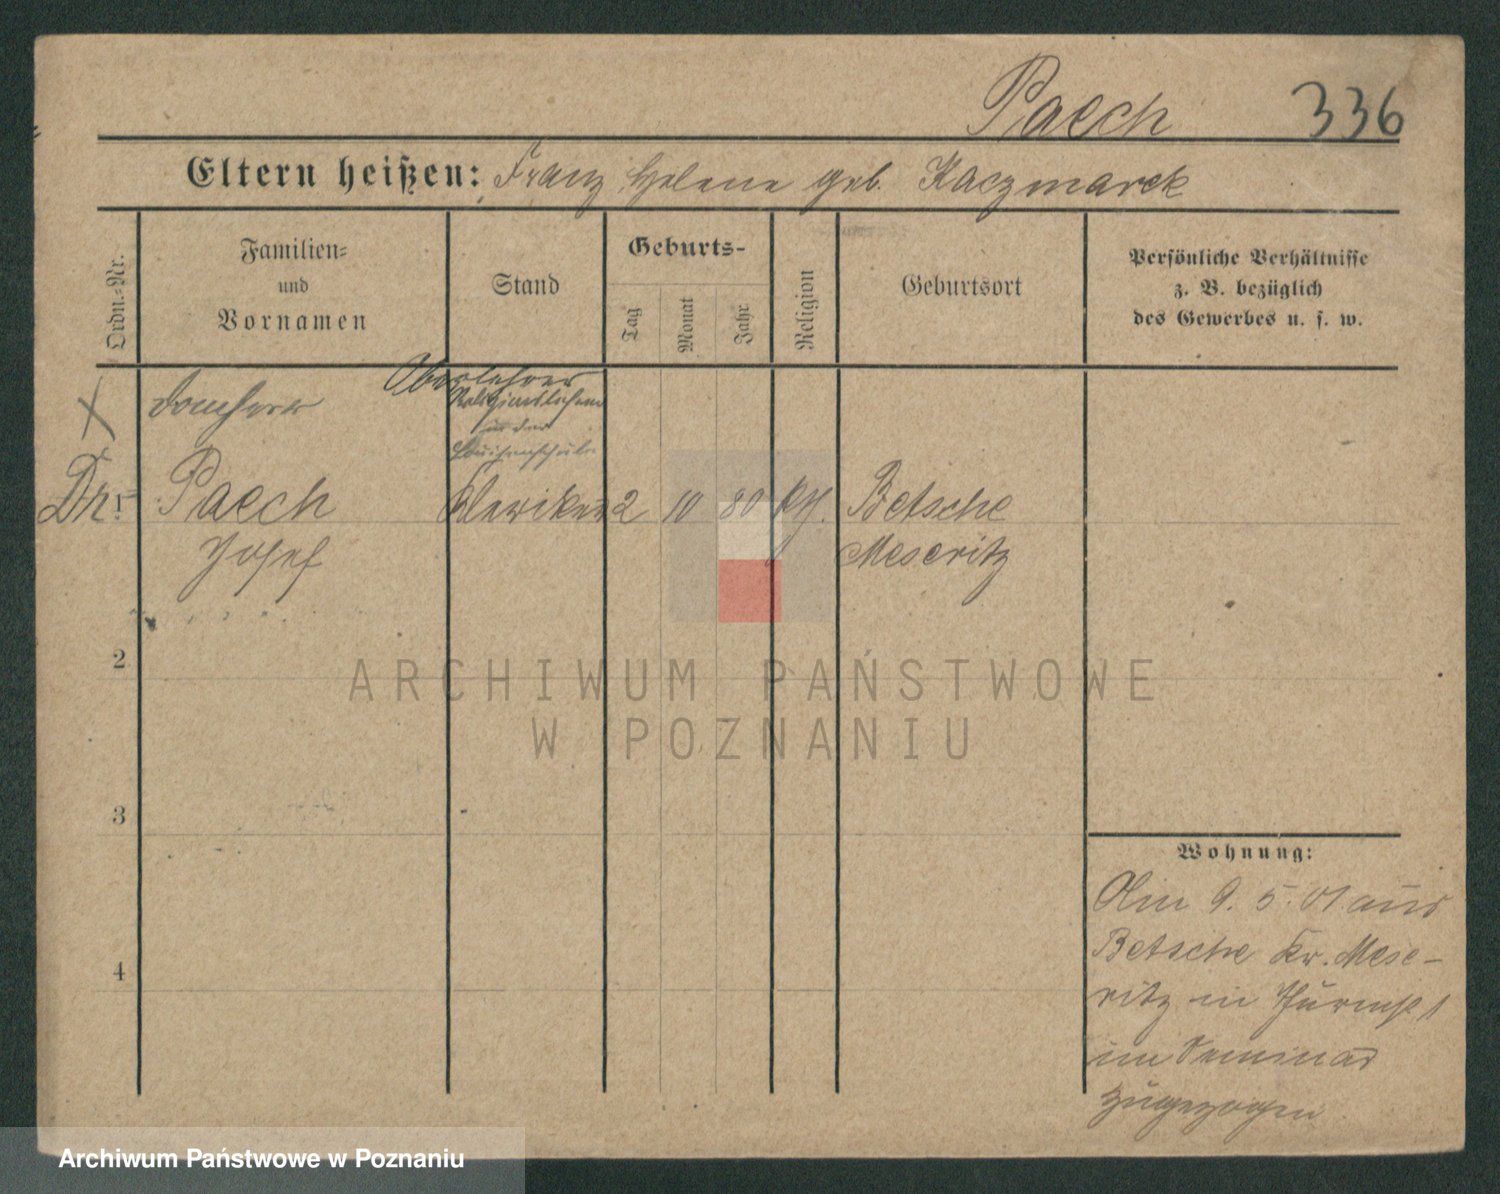 Paech 336
Eltern heißen: Franz Helene geb. Kaczmarek
Ordn.-Nr.
Familien-
und
Vornamen
Stand
Geburts-
Tag
Monat
Jahr
Religion
Geburtsort
Persönliche Verhältnisse
z. B. bezüglich
des Gewerbes u. s. w.
Domherr
Oberlehrer
an der
Louisenschule
Dr. 1 Paech Kleriker 2 10 80 kth. Betsche
Josef Meseritz
2
3
4
Wohnung:
Am 9. 5. 01 aus
Betsche Kr. Mese-
ritz in Thurmstr. 1
im Seminar
zugezogen
ARCHIWUM PAŃSTWOWE
W POZNANIU
Archiwum Państwowe w Poznaniu